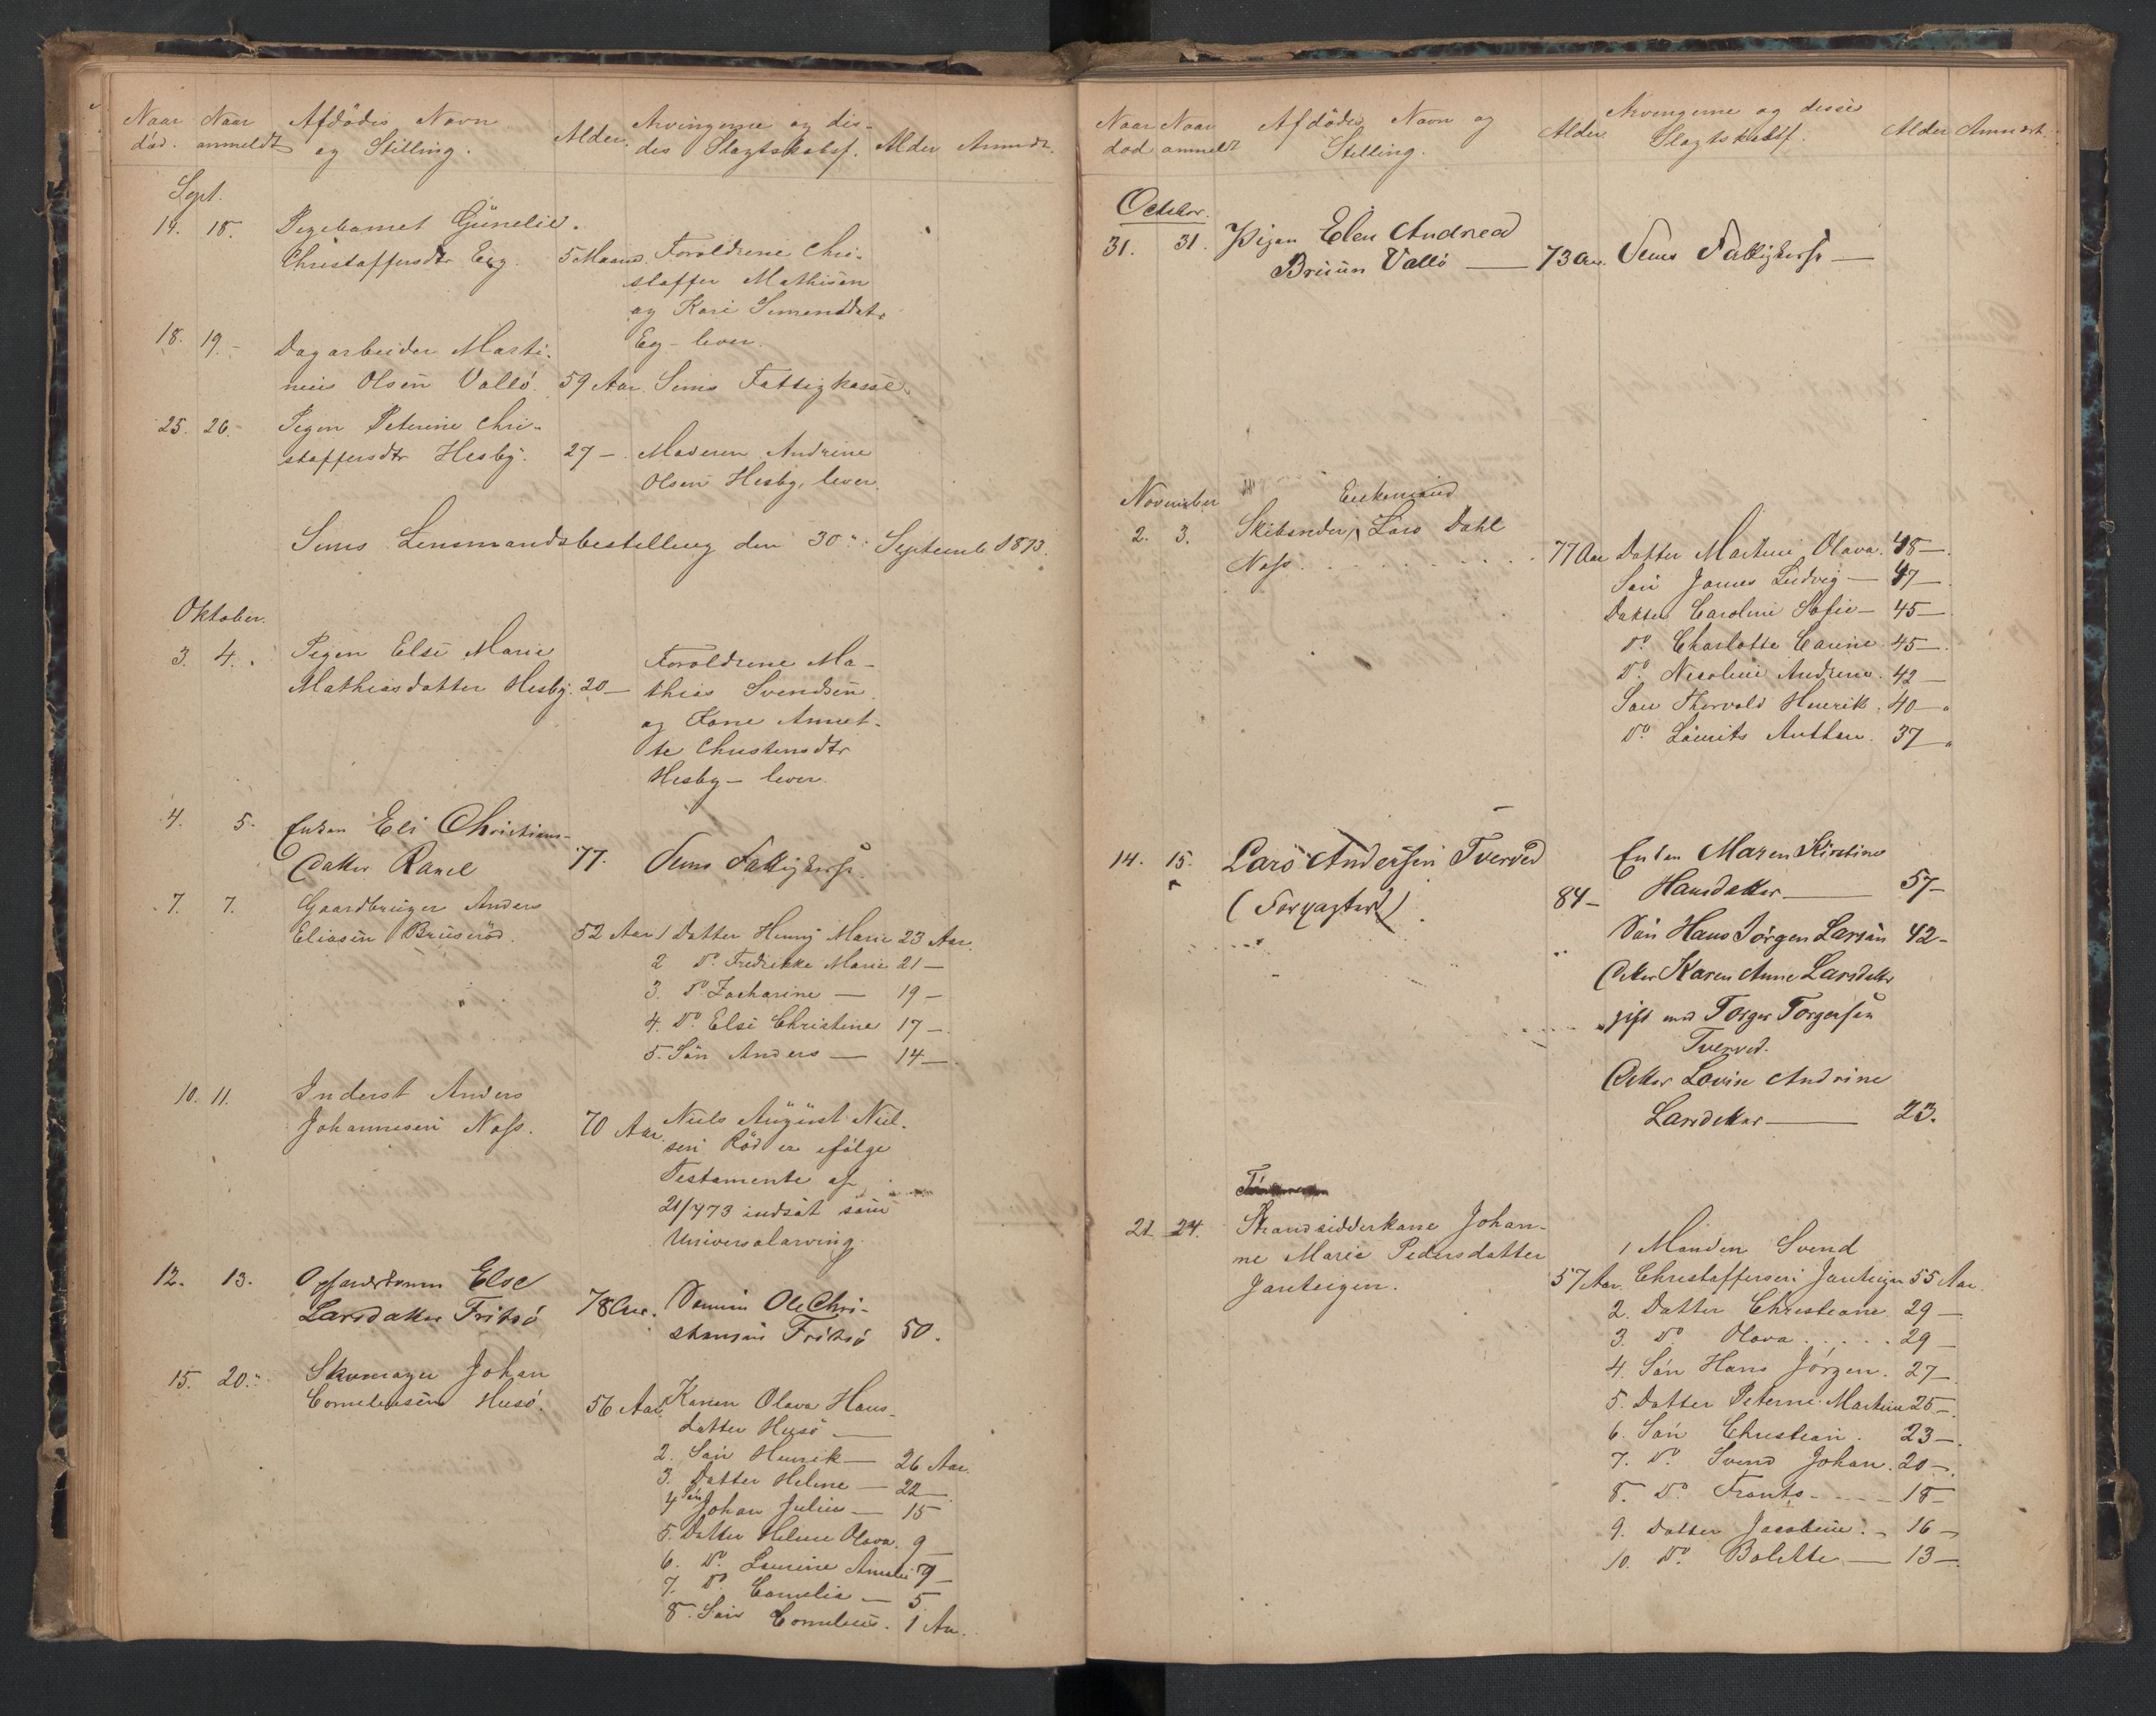 Naar Naar Afdødes Navn Alder. Arvingerne og dis-
død. anmeldt og Stilling. des Slagtskabsf. Alder Anmærk.
Sept.
14. 18. Pigebarnet Gunelie
Christoffersdtr Eeg. 5 Maaned Foroldrene Chri-
stoffer Mathisen
og Kari Simensdatr
Eeg - lever.
18. 19. Dagarbeider Marti-
nius Olsen Vallø. 59 Aar. Sems Fattigkasse.
25. 26. Pigen Peterine Chri-
stoffersdtr Hesby. 27 — Moderen Andrine
Olsen Hesby, lever.
Sems Lensmandsbestilling den 30. September 1873.
Oktober.
3. 4. Pigen Else Marie Foroldrene Ma-
Mathiasdatter Hesby. 20 — thias Svendsen
og Kone Annet-
te Christensdtr
Hesby — lever.
4. 5. Enken Eli Christians-
datter Ramel 77. Sems Fattigkasse.
7. 7. Gaardbruger Anders
Eliasen Bruserød. 52 Aar 1 Datter Henny Marie 23 Aar.
2 Do. Fredrikke Marie 21 —
3. Do. Zacharine — 19 —
4. Do. Else Christine 17 —
5. Søn Anders — 14 —
10. 11. Inderst Anders
Johannesen Næss. 70 Aar. Niels August Niel-
sen Rød er ifølge
Testamente af
21/7 73 indsat som
Universalarving.
12. 13. Opfostrdkonen Else
Larsdatter Fritsø 78 Aar. Sønnen Ole Chri-
stensen Fritsø 50.
15. 20. Skomager Johan
Corneliusen Husø. 56 Aar. Konen Olava Hans-
datter Husø —
2. Søn Henrik — 26 Aar.
3. Datter Heline — 22 —
4 Søn Johan Julius — 15
5. Datter Heline Olava. 9 —
6. Do. Laurine Amalie 7 —
7. Do. Cornelia — 5
8. Søn Cornelius. 1 Aar.
Naar Naar Afdødes Navn og Alder. Arvingerne og disses Alder Anmærk.
død anmeldt Stilling. Slagtskabsf.
October.
31. 31. Pigen Elen Andrea
Bruun Vallø — 73 Aar. Sems Fattigkasse —
November Enkemand
2. 3. Skibsreder Lars Dahl
Næss. 77 Aar Datter Martine Olava. 48 —
Søn James Ludvig — 47 —
Datter Caroline Sofie — 45 —
Do. Charlotte Carine. 45 —
Do. Nicoline Andrine. 42 —
Søn Thorvald Henrik. 40 —
Do. Lauritz Anthon. 37 —
14. 15. Lars Andersen Tverved Enken Maren Kirstine
(Forpagter) 84 — Hansdatter — 57 —
Søn Hans Jørgen Larsen 42 —
Datter Karen Anne Larsdatter
gift med Torger Torgersen
Tverved.
Datter Lovise Andrine
Larsdatter — 23.
21. 24. Strandsidderkone Johan-
ne Marie Pedersdatter 1 Manden Svend
Jarteigen. 57 Aar. Christoffersen Jarteigen 55 Aar.
2. Datter Christiane 29 —
3. Do Olava . . . . 29 —
4. Søn Hans Jørgen. 27 —
5. Datter Peterine Martine 25 —
6. Søn Christian. 23 —
7. Do. Svend Johan. 20 —
8. Do. Frants — 18 —
9. Datter Jacobine. — 16 —
10. Do. Bolette — 13 —